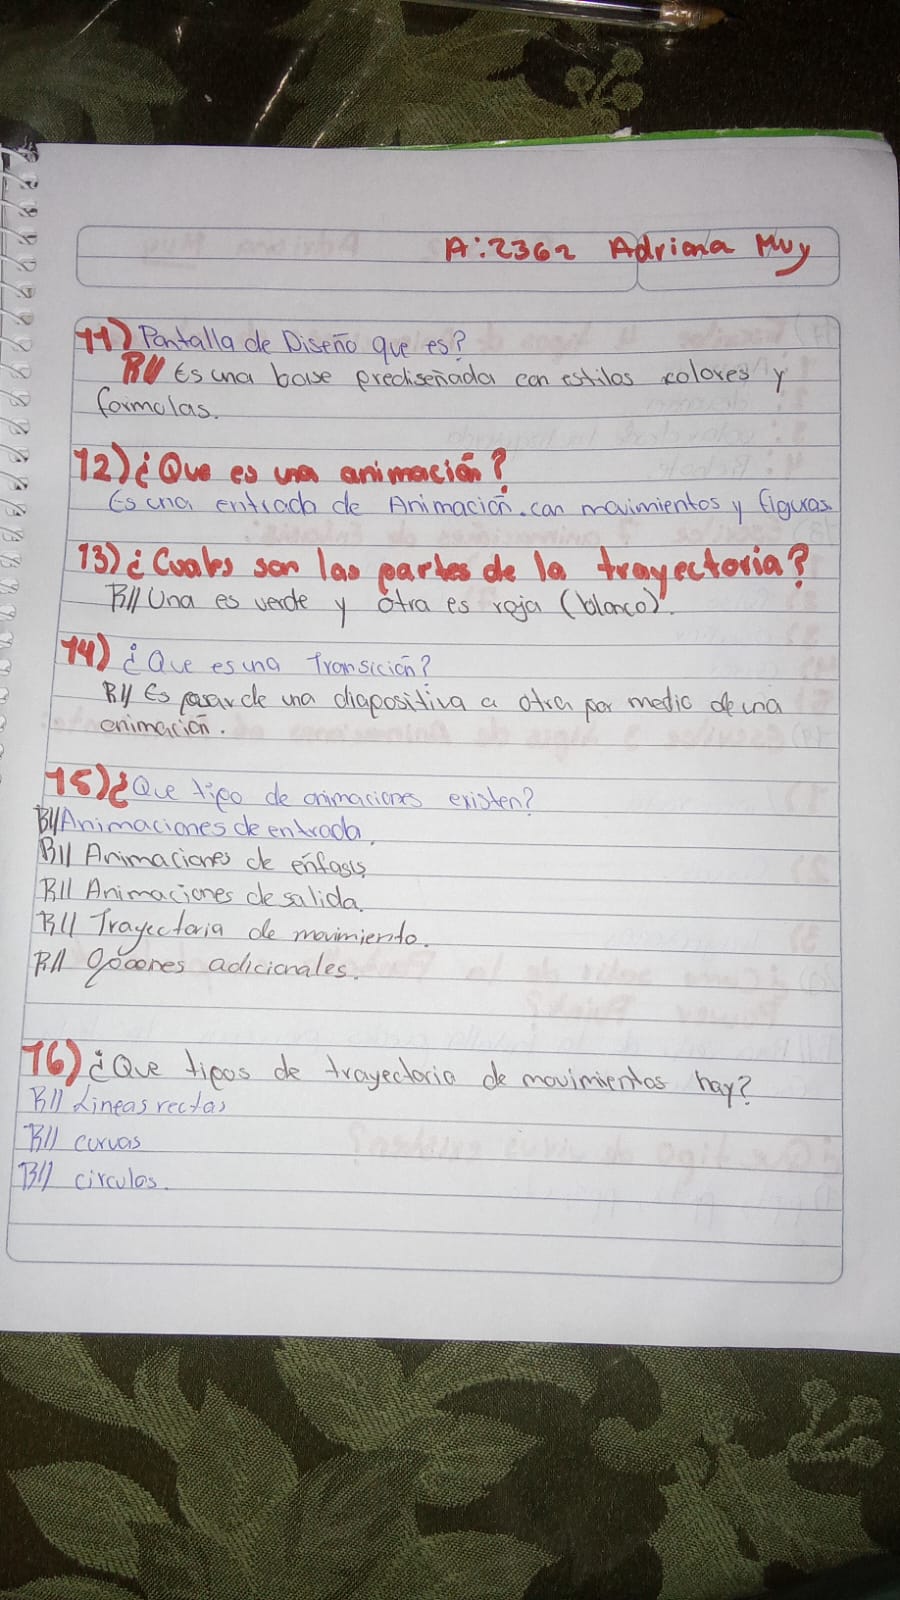 A:2362 Adriana Muy
11) Pantalla de Diseño que es?
R// Es una base prediseñada con estilos colores y
formulas.
12) ¿Que es una animación?
Es una entrada de Animación. con movimientos y figuras.
13) ¿Cuales son las partes de la trayectoria?
R// Una es verde y otra es roja (blanco).
14) ¿Que es una Transición?
R// Es pasar de una diapositiva a otra por medio de una
animación.
15) ¿Que tipo de animaciones existen?
R// Animaciones de entrada.
R// Animaciones de enfasis
R// Animaciones de salida.
R// Trayectoria de movimiento.
R// Opciones adicionales.
16) ¿Que tipos de trayectoria de movimientos hay?
R// Lineas rectas
R// curvas
R// circulos.